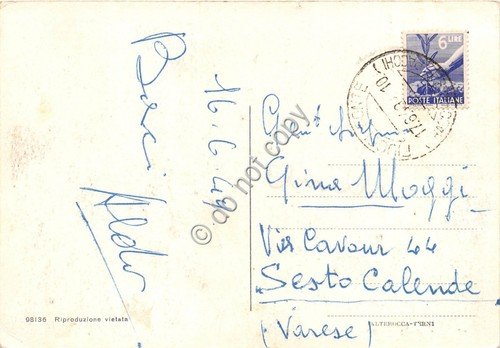 Baci
Aldo
16.6.49
Gent. Sig.na
Gina Maggi
Via Cavour 44
Sesto Calende
(Varese)
6 LIRE
POSTE ITALIANE
do not copy
98136 Riproduzione vietata
ALTEROCCA-TERNI